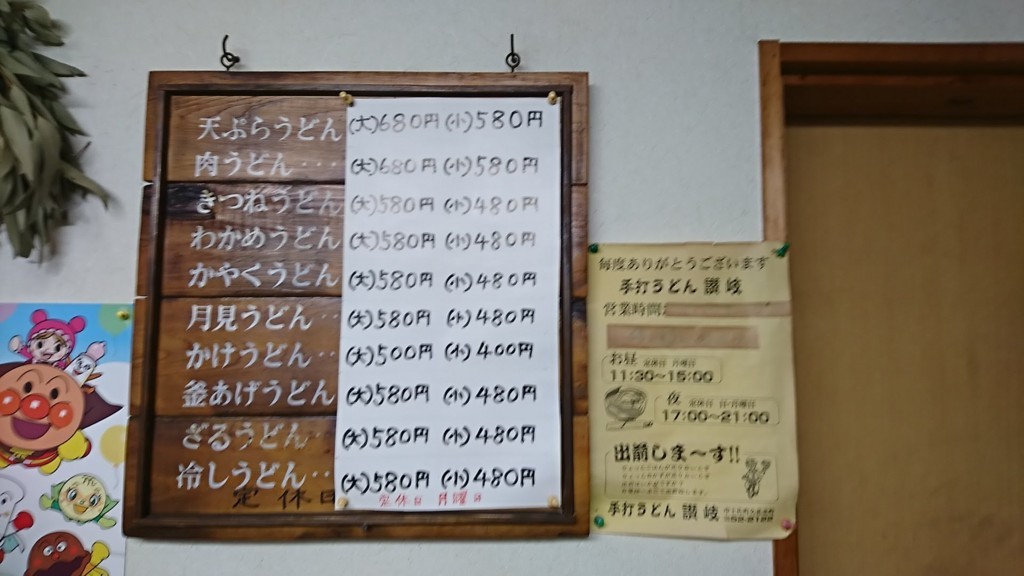 天ぷらうどん (大)680円 (小)580円
肉うどん・・・・ (大)680円 (小)580円
きつねうどん (大)580円 (小)480円
わかめうどん (大)580円 (小)480円
かやくうどん (大)580円 (小)480円
月見うどん・・ (大)580円 (小)480円
かけうどん・・ (大)500円 (小)400円
釜あげうどん (大)580円 (小)480円
ざるうどん・・ (大)580円 (小)480円
冷しうどん・・・ (大)580円 (小)480円
定休日
定休日 月曜日
毎度ありがとうございます
手打うどん 讃岐
営業時間
お昼 定休日 月曜日
11:30〜15:00
夜
17:00〜21:00
出前しま〜す!!
手打うどん 讃岐